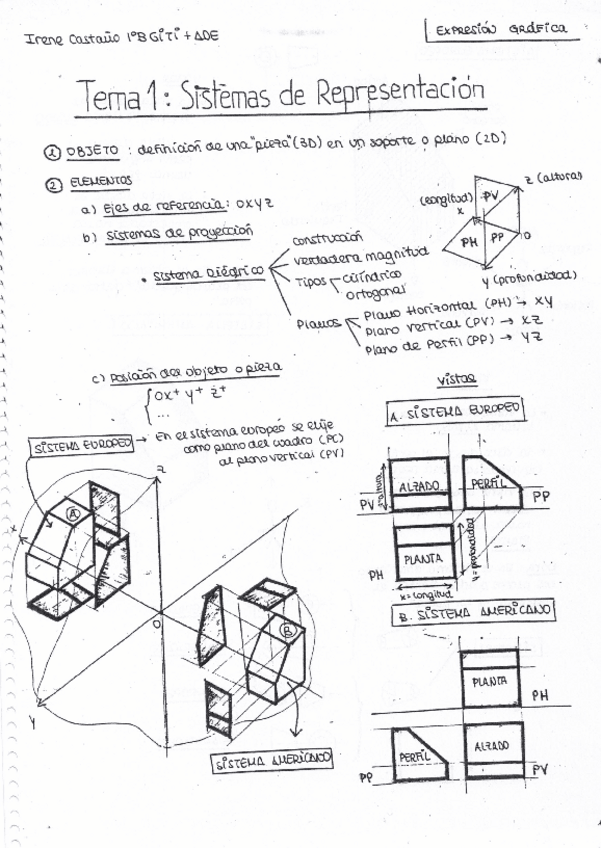 Irene Castaño 1ºB GITI + ADE
EXPRESIÓN GRÁFICA
Tema 1: Sistemas de Representación
1 OBJETO : definición de una "pieza" (3D) en un soporte o plano (2D)
2 ELEMENTOS
a) Ejes de referencia: OXYZ
b) Sistemas de proyección
• Sistema Diédrico
construcción
verdadera magnitud
Tipos
cilíndrico
ortogonal
Planos
Plano Horizontal (PH) → XY
Plano Vertical (PV) → XZ
Plano de Perfil (PP) → YZ
z (altura)
(longitud)
x
PV
PH
PP
O
y (profundidad)
c) Posición del objeto o pieza
OX+ Y+ Z+
...
SISTEMA EUROPEO → En el sistema europeo se elije
como plano del cuadro (PC)
al plano vertical (PV)
Z
X
A
O
B
Y
SISTEMA AMERICANO
Vistas
A. SISTEMA EUROPEO
z=altura
ALZADO
PERFIL
PV
PP
PLANTA
y=profundidad
PH
x=longitud
B. SISTEMA AMERICANO
PLANTA
PH
PERFIL
ALZADO
PP
PV